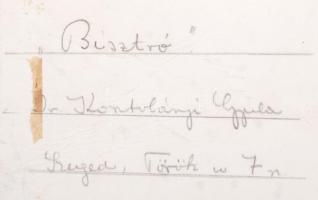 „Bisztró"
Dr. Kontolányi Gyula
Szeged, Török u 7 n